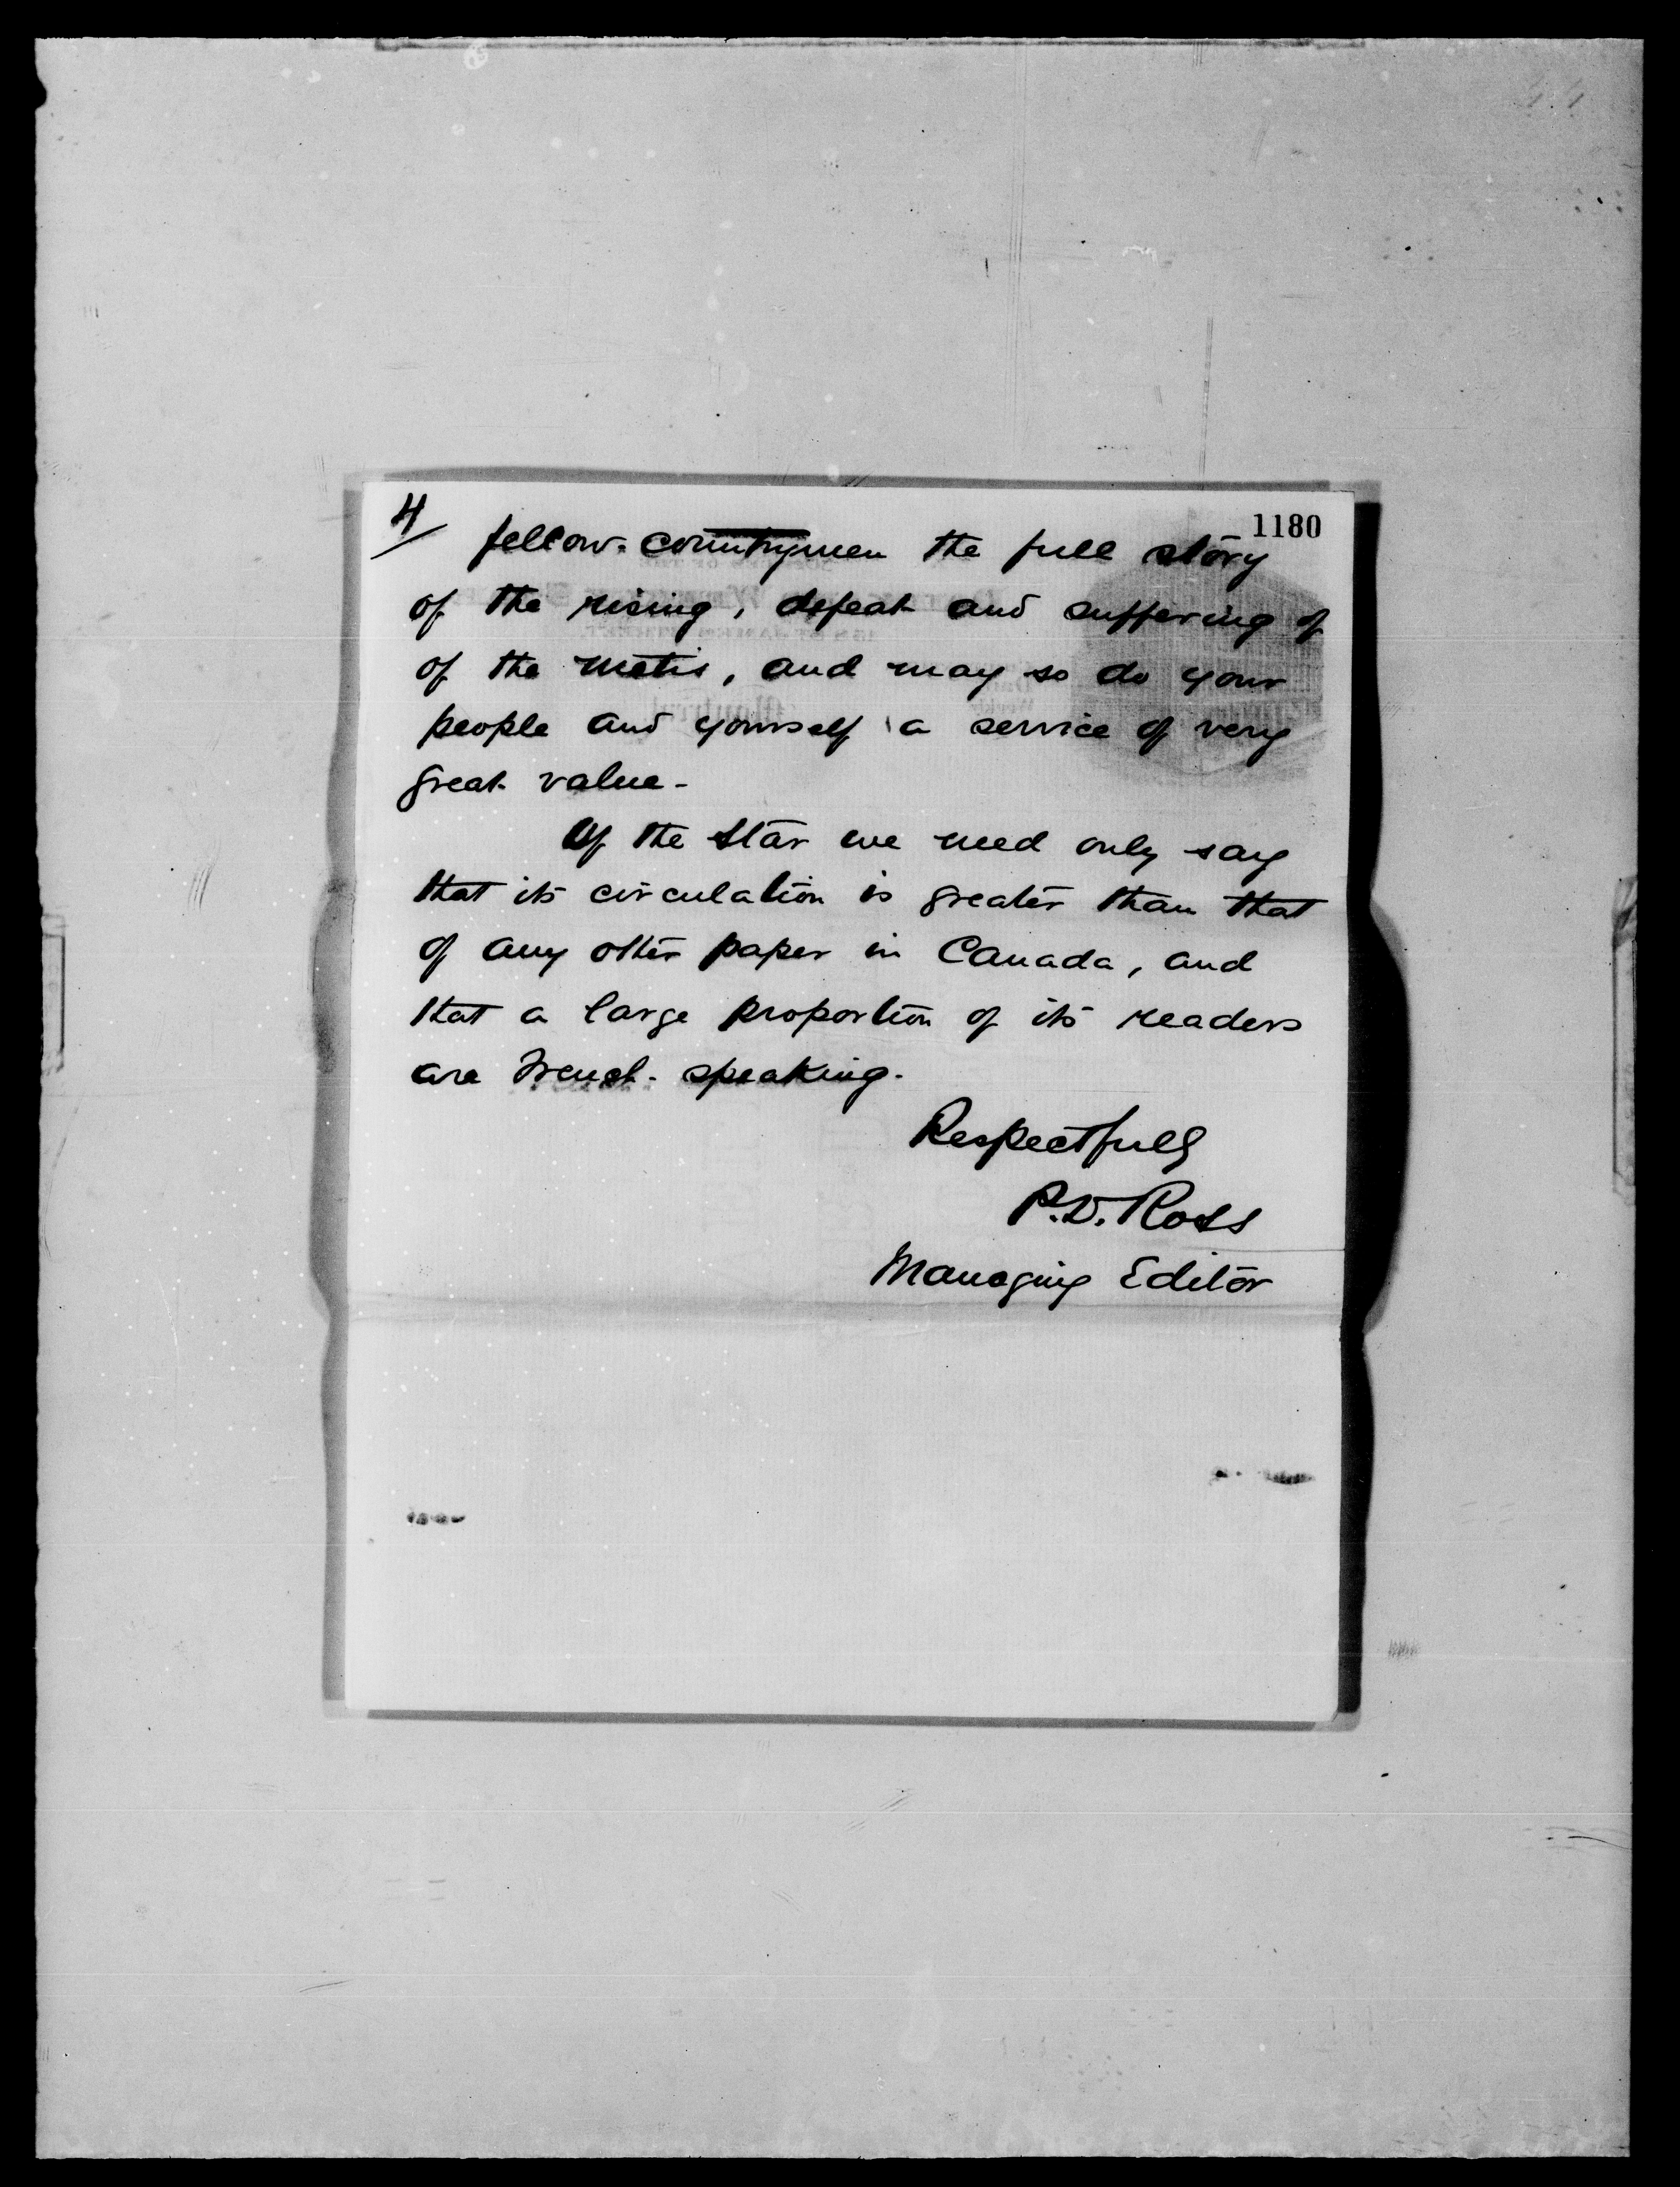 4/
1180
fellow-countrymen the full story
of the rising, defeat and suffering of
of the metis, and may so do your
people and yourself a service of very
great value-
Of the Star we need only say
that its circulation is greater than that
of any other paper in Canada, and
that a large proportion of its readers
are French-speaking.
Respectfully
P.D. Ross
Managing Editor